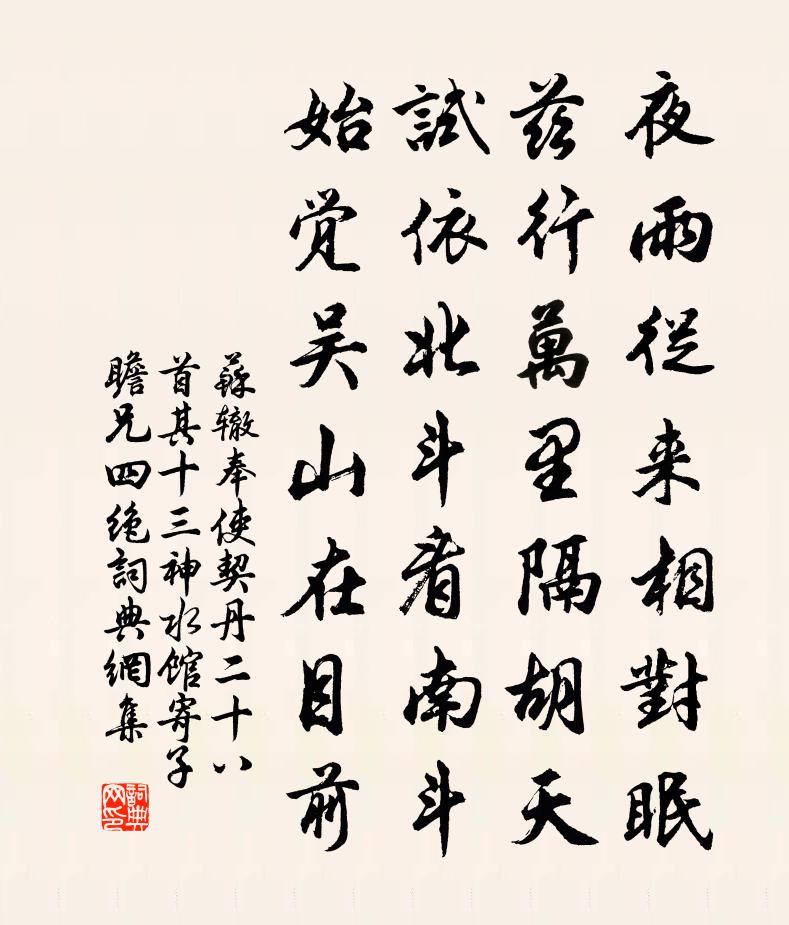 夜雨從来相對眠
茲行萬里隔胡天
試依北斗看南斗
始覺吴山在目前
蘇辙奉使契丹二十八
首其十三神水館寄子
瞻兄四絶詞典網集
詞典网印